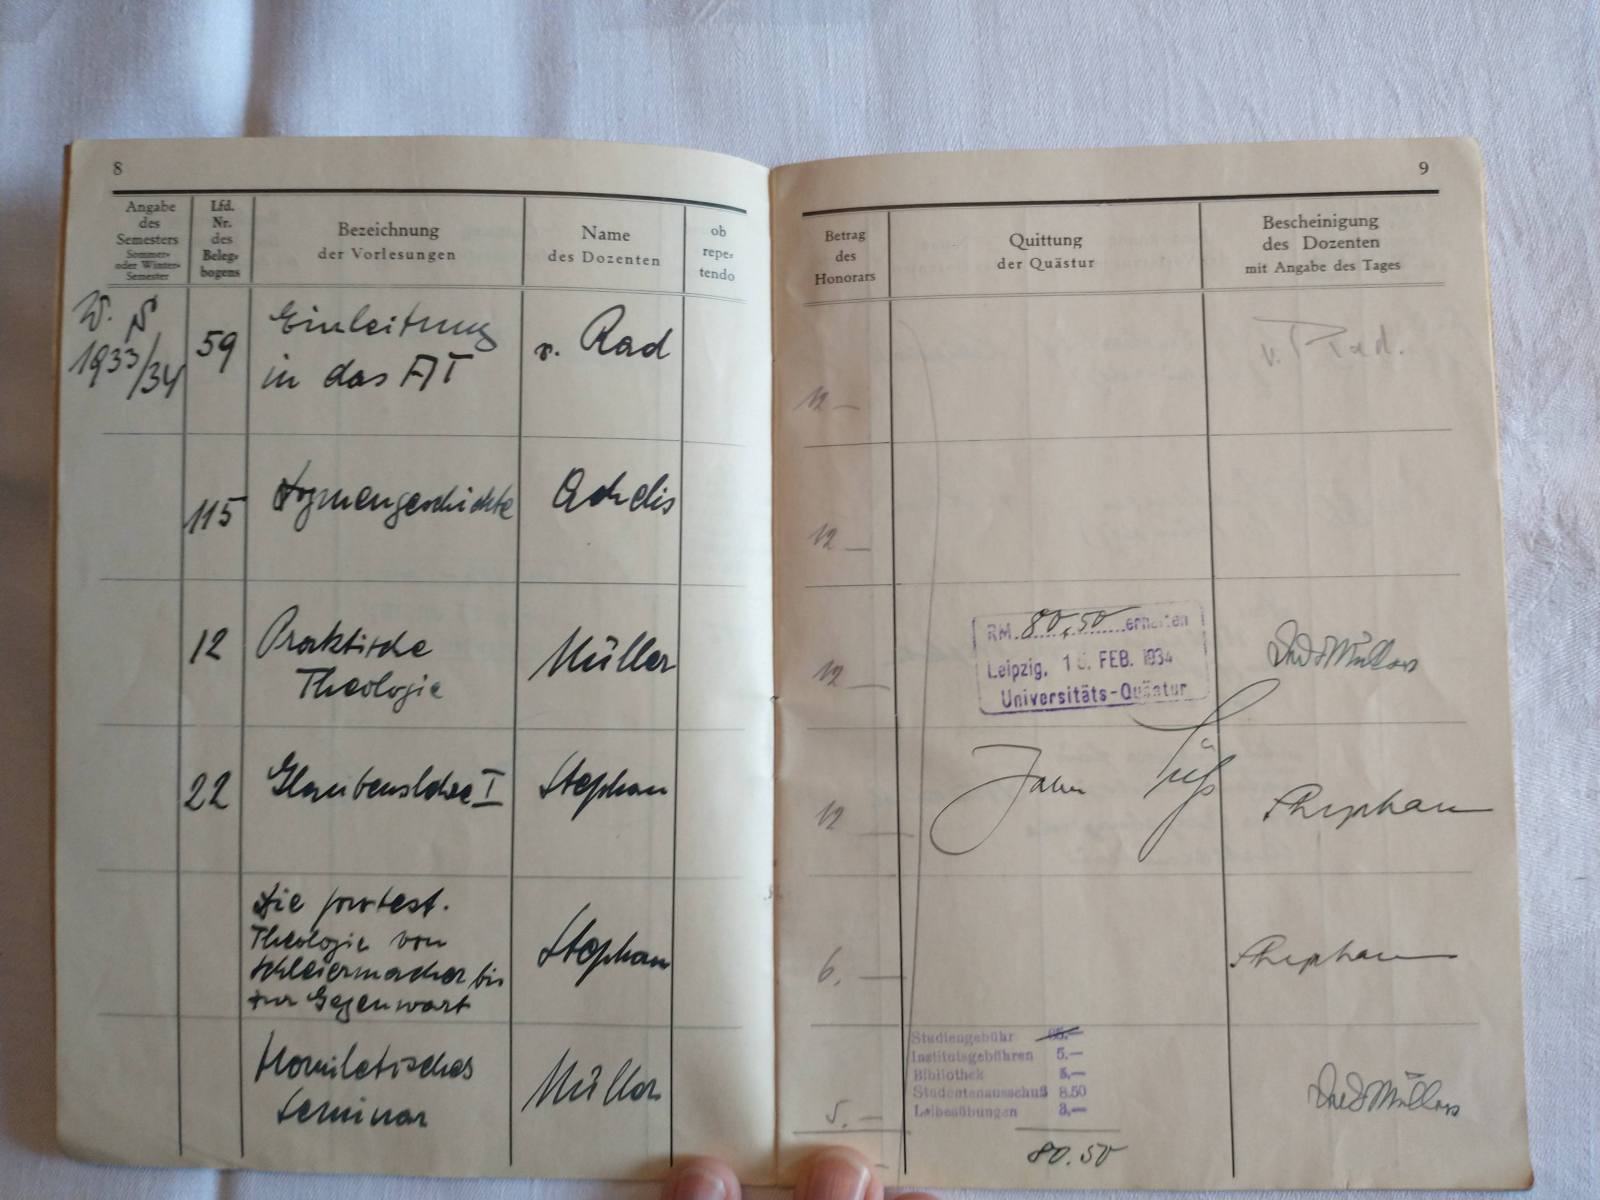 8
Angabe
des
Semesters
Sommer-
oder Winter-
Semester
Lfd.
Nr.
des
Beleg-
bogens
Bezeichnung
der Vorlesungen
Name
des Dozenten
ob
repe-
tendo
W. S.
1933/34
59
Einleitung
in das AT
v. Rad
115
Dogmengeschichte
Achelis
12
Praktische
Theologie
Müller
22
Glaubenslehre I
Stephan
Die protest.
Theologie von
Schleiermacher bis
zur Gegenwart
Stephan
Homiletisches
Seminar
Müller
9
Betrag
des
Honorars
Quittung
der Quästur
Bescheinigung
des Dozenten
mit Angabe des Tages
12 —
v. Rad.
12 —
12 —
RM. 80,50 erhalten
Leipzig, FEB. 1934
Universitäts-Quästur
Müller
12 —
Stephan
6. —
Stephan
Studiengebühr
Institutsgebühren 5.—
Bibliothek 5,—
Studentenausschuß 8.50
Leibesübungen 3,—
5. —
Müller
80.50